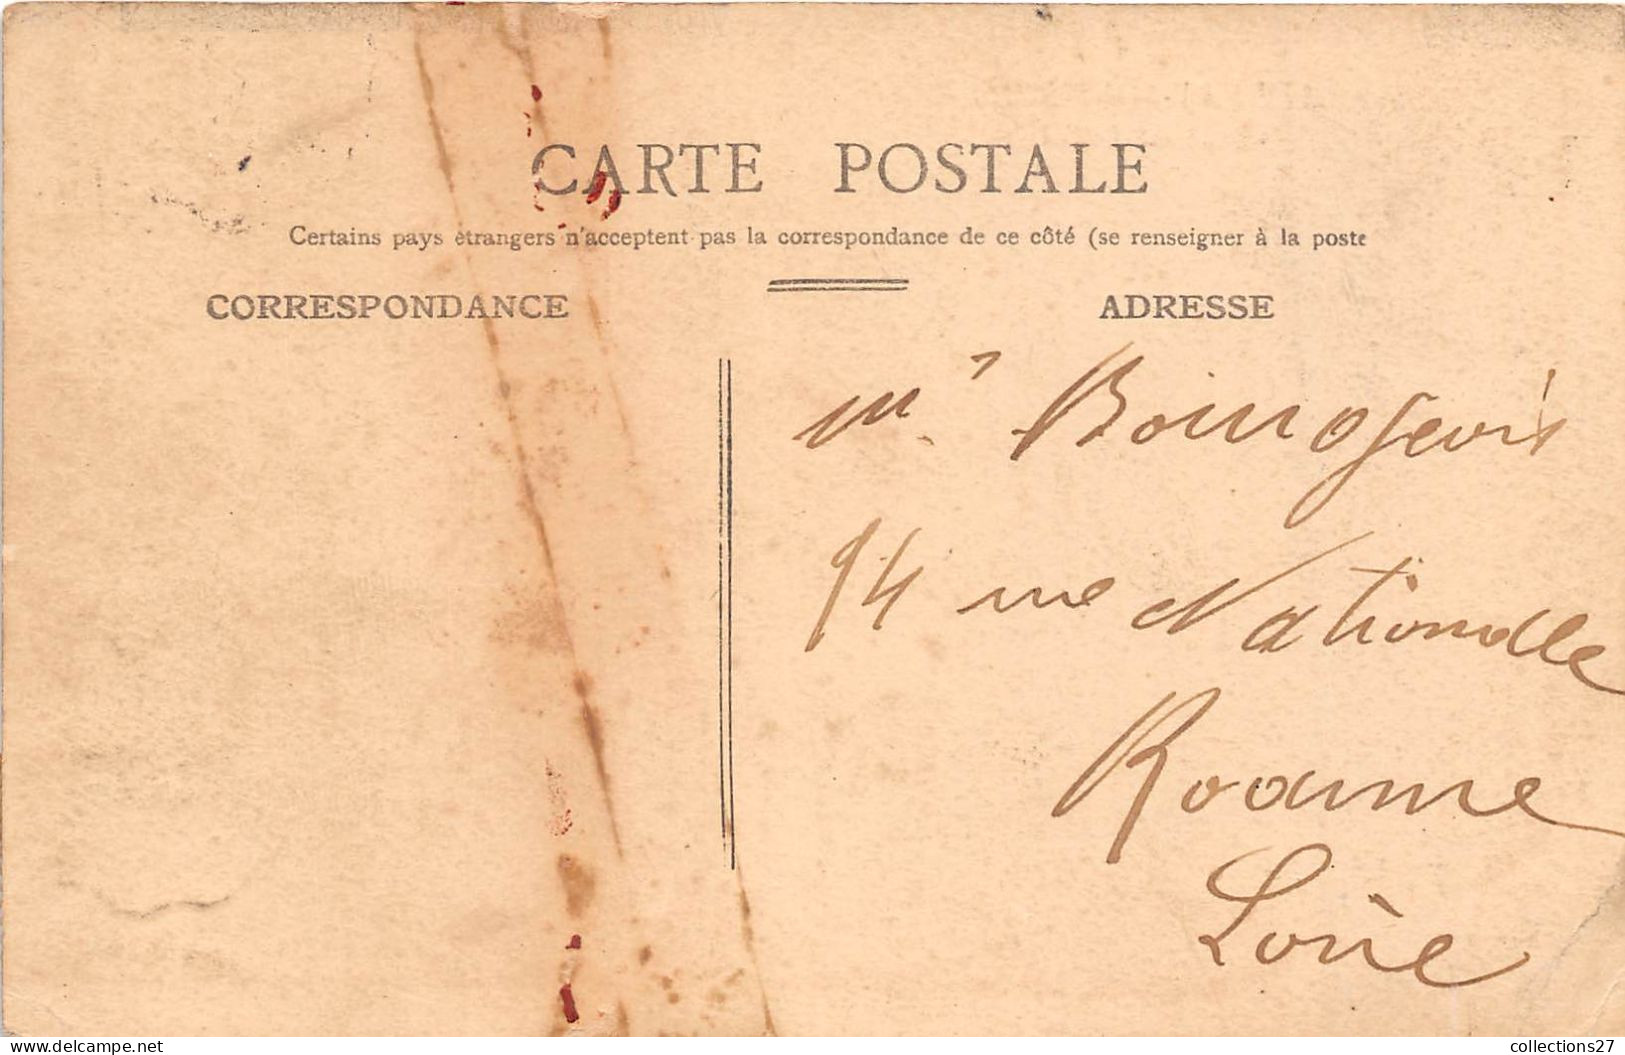 CARTE POSTALE
Certains pays étrangers n'acceptent pas la correspondance de ce côté (se renseigner à la poste
CORRESPONDANCE
ADRESSE
Mr
94 rue Nationalle
Roanne
Loire
delcampe.net
collections27